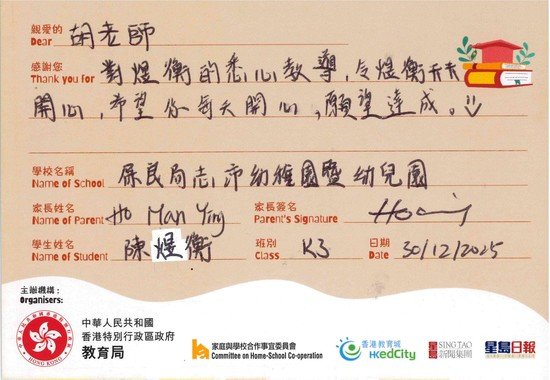 親愛的 Dear 胡老師
感謝您 Thank you for 對煜衡的悉心教導,令煜衡天天
開心,希望你每天開心,願望達成。
學校名稱 Name of School 保良局志沛幼稚園暨幼兒園
家長姓名 Name of Parent Ho Man Ying 家長簽名 Parent's Signature
學生姓名 Name of Student 陳煜衡 班別 Class K3 日期 Date 30/12/2025
主辦機構:
Organisers:
HONG KONG
中華人民共和國
香港特別行政區政府
教育局
家庭與學校合作事宜委員會
Committee on Home-School Co-operation
香港教育城
HKedCity
星島 SING TAO 新聞集團
星島日報